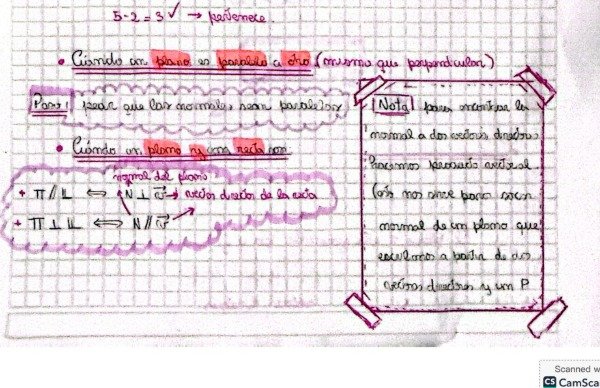 5-2=3 ✓ → pertenece.
• Cuándo un plano es paralelo a otro (mismo que perpendicular)
Paso 1 pedir que las normales sean paralelas
• Cuándo un plano y una recta son
normal del plano
+ π // L ⟺ N ⊥ v → vector director de la recta
+ π ⊥ L ⟺ N // v
Nota para encontrar la
normal a dos vectores directores
hacemos producto vectorial
nos sirve para sacar
normal de un plano que
a partir de dos
vectores directores y un P
Scanned w
CS CamSca